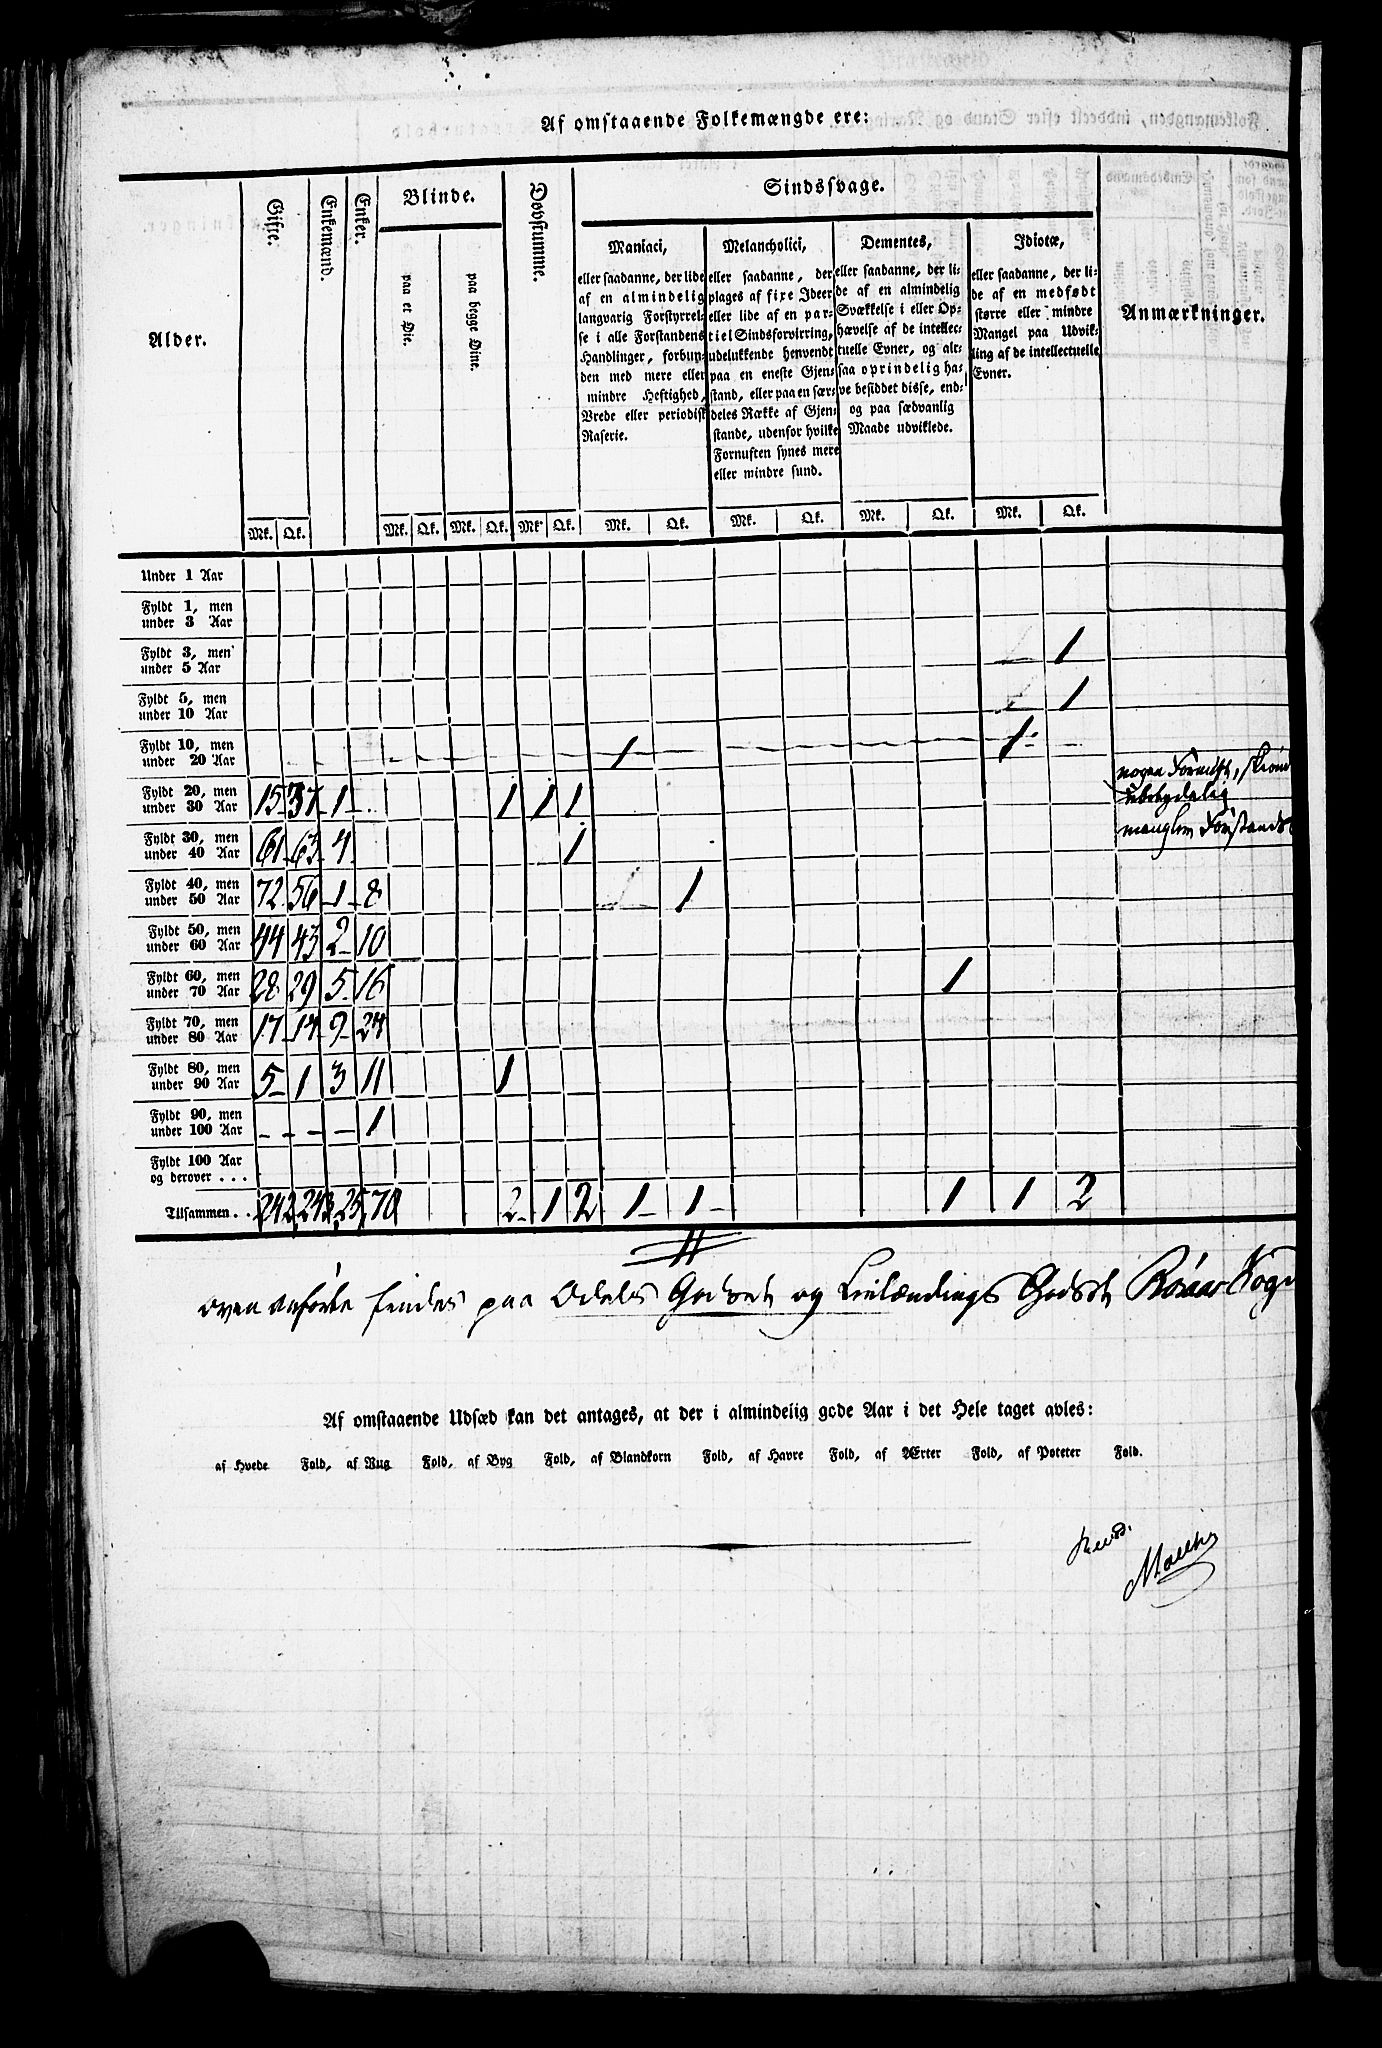 Af omstaaende Folkemængde ere:
Alder.
Gifte.
Enkemænd.
Enker.
Blinde.
paa et Øie.
paa begge Øine.
Døvstumme.
Sindssvage.
Maniaci,
eller saadanne, der lide
af en almindelig
langvarig Forstyrrel-
se i alle Forstandens
Handlinger, forbun-
den med mere eller
mindre Heftighed,
Vrede eller periodisk
Raserie.
Melancholici,
eller saadanne, der
plages af fixe Ideer
eller lide af en par-
tiel Sindsforvirring,
udelukkende henvendt
paa en eneste Gjen-
stand, eller paa en sær-
deles Række af Gjen-
stande, udenfor hvilke
Fornuften synes mere
eller mindre sund.
Dementes,
eller saadanne, der li-
de af en almindelig
Svækkelse i eller Op-
hævelse af de intellec-
tuelle Evner, og alt-
saa oprindelig ha-
ve besiddet disse, end-
og paa sædvanlig
Maade udviklede.
Idiotæ,
eller saadanne, der li-
de af en medfødt
større eller mindre
Mangel paa Udvik-
ling af de intellectuelle
Evner.
Anmærkninger.
Mk. Qk. Mk. Qk. Mk. Qk. Mk. Qk. Mk. Qk. Mk. Qk. Mk. Qk. Mk. Qk.
Under 1 Aar
Fyldt 1, men
under 3 Aar
Fyldt 3, men
under 5 Aar 1
Fyldt 5, men
under 10 Aar 1
Fyldt 10, men
under 20 Aar 1 1
Fyldt 20, men
under 30 Aar 15 37 1 1 1 1
Fyldt 30, men
under 40 Aar 61 63 4 1
Fyldt 40, men
under 50 Aar 72 56 1 8 1
Fyldt 50, men
under 60 Aar 44 43 2 10
Fyldt 60, men
under 70 Aar 28 29 5 16 1
Fyldt 70, men
under 80 Aar 17 14 9 24
Fyldt 80, men
under 90 Aar 5 1 3 11 1
Fyldt 90, men
under 100 Aar - - - - 1
Fyldt 100 Aar
og derover . . .
Tilsammen . . 242 243 25 70 2 1 2 1 1 1 1 2
ubetydelig
mangler Forstands
ovenanførte findes paa Odels Godset og Leilændings Godset
Af omstaaende Udsæd kan det antages, at der i almindelig gode Aar i det Hele taget avles:
af Hvede Fold, af Rug Fold, af Byg Fold, af Blandkorn Fold, af Havre Fold, af Ærter Fold, af Poteter Fold.